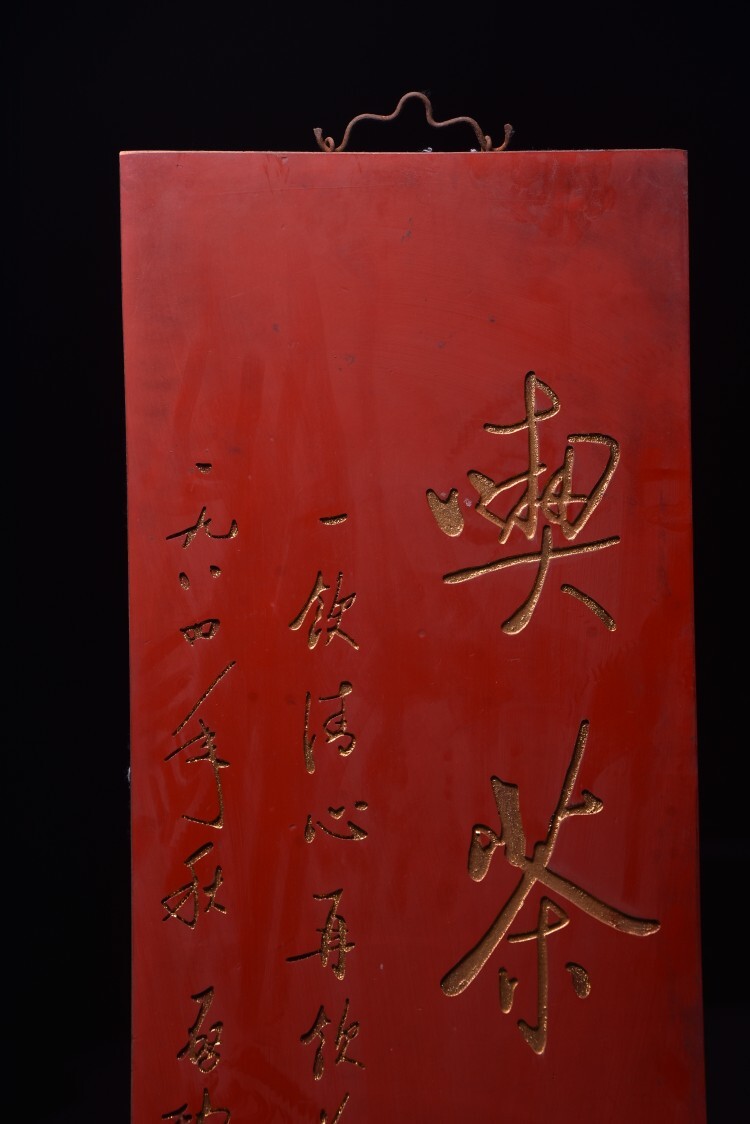 喫茶
一飲清心再飲
一九八四年秋启功